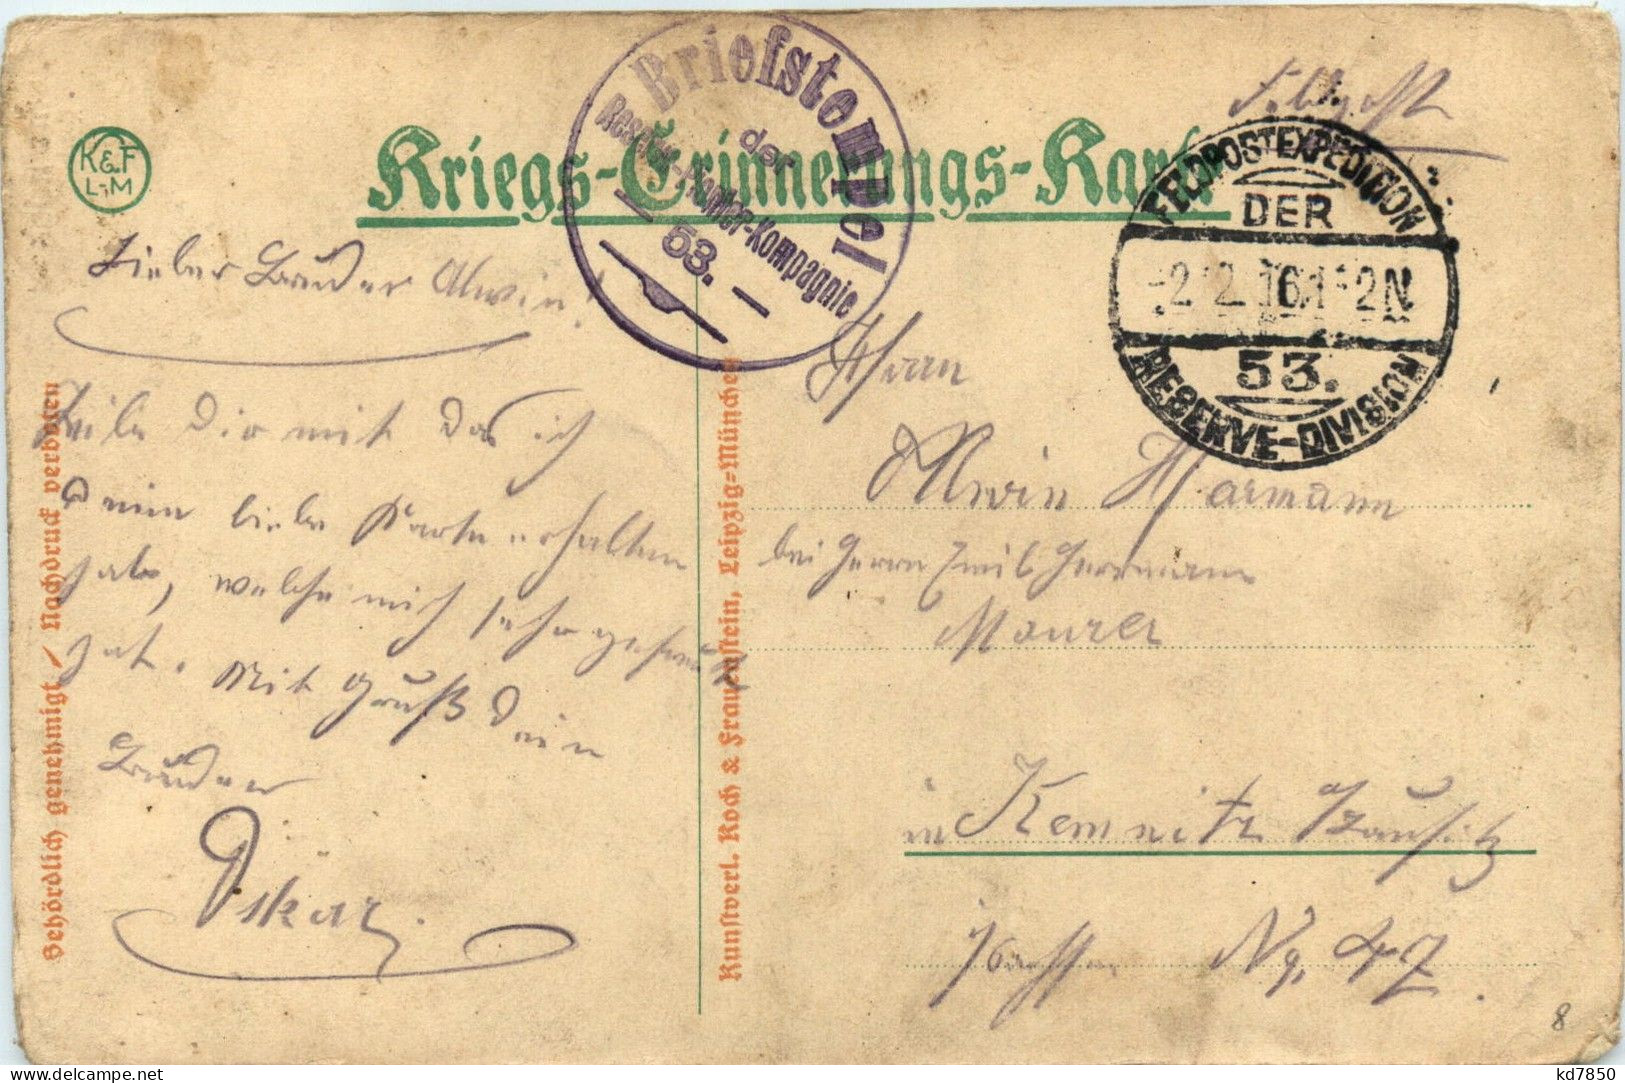 Feldpost
K&F
L-M
Kriegs-Erinnerungs-Karte
Briefstempel
der
Reserve-Pionier-Kompagnie
53.
FELDPOSTEXPEDITION
DER
-2.2.16.1-2N
53.
RESERVE-DIVISION
Lieber Bruder Alwin!
Teile Dir mit das ich
Deine liebe Karte erhalten
habe, welche mich sehr gefreut
hat. Mit Gruß Dein
Bruder
Oskar.
Behördlich genehmigt / Nachdruck verboten
Kunstverl. Koch & Frauenstein, Leipzig=München
Herrn
Alwin Hermann
bei Herrn Emil Herrmann
Maurer
in Kemnitz Lausitz
Sachsen No. 47.
8
kd7850